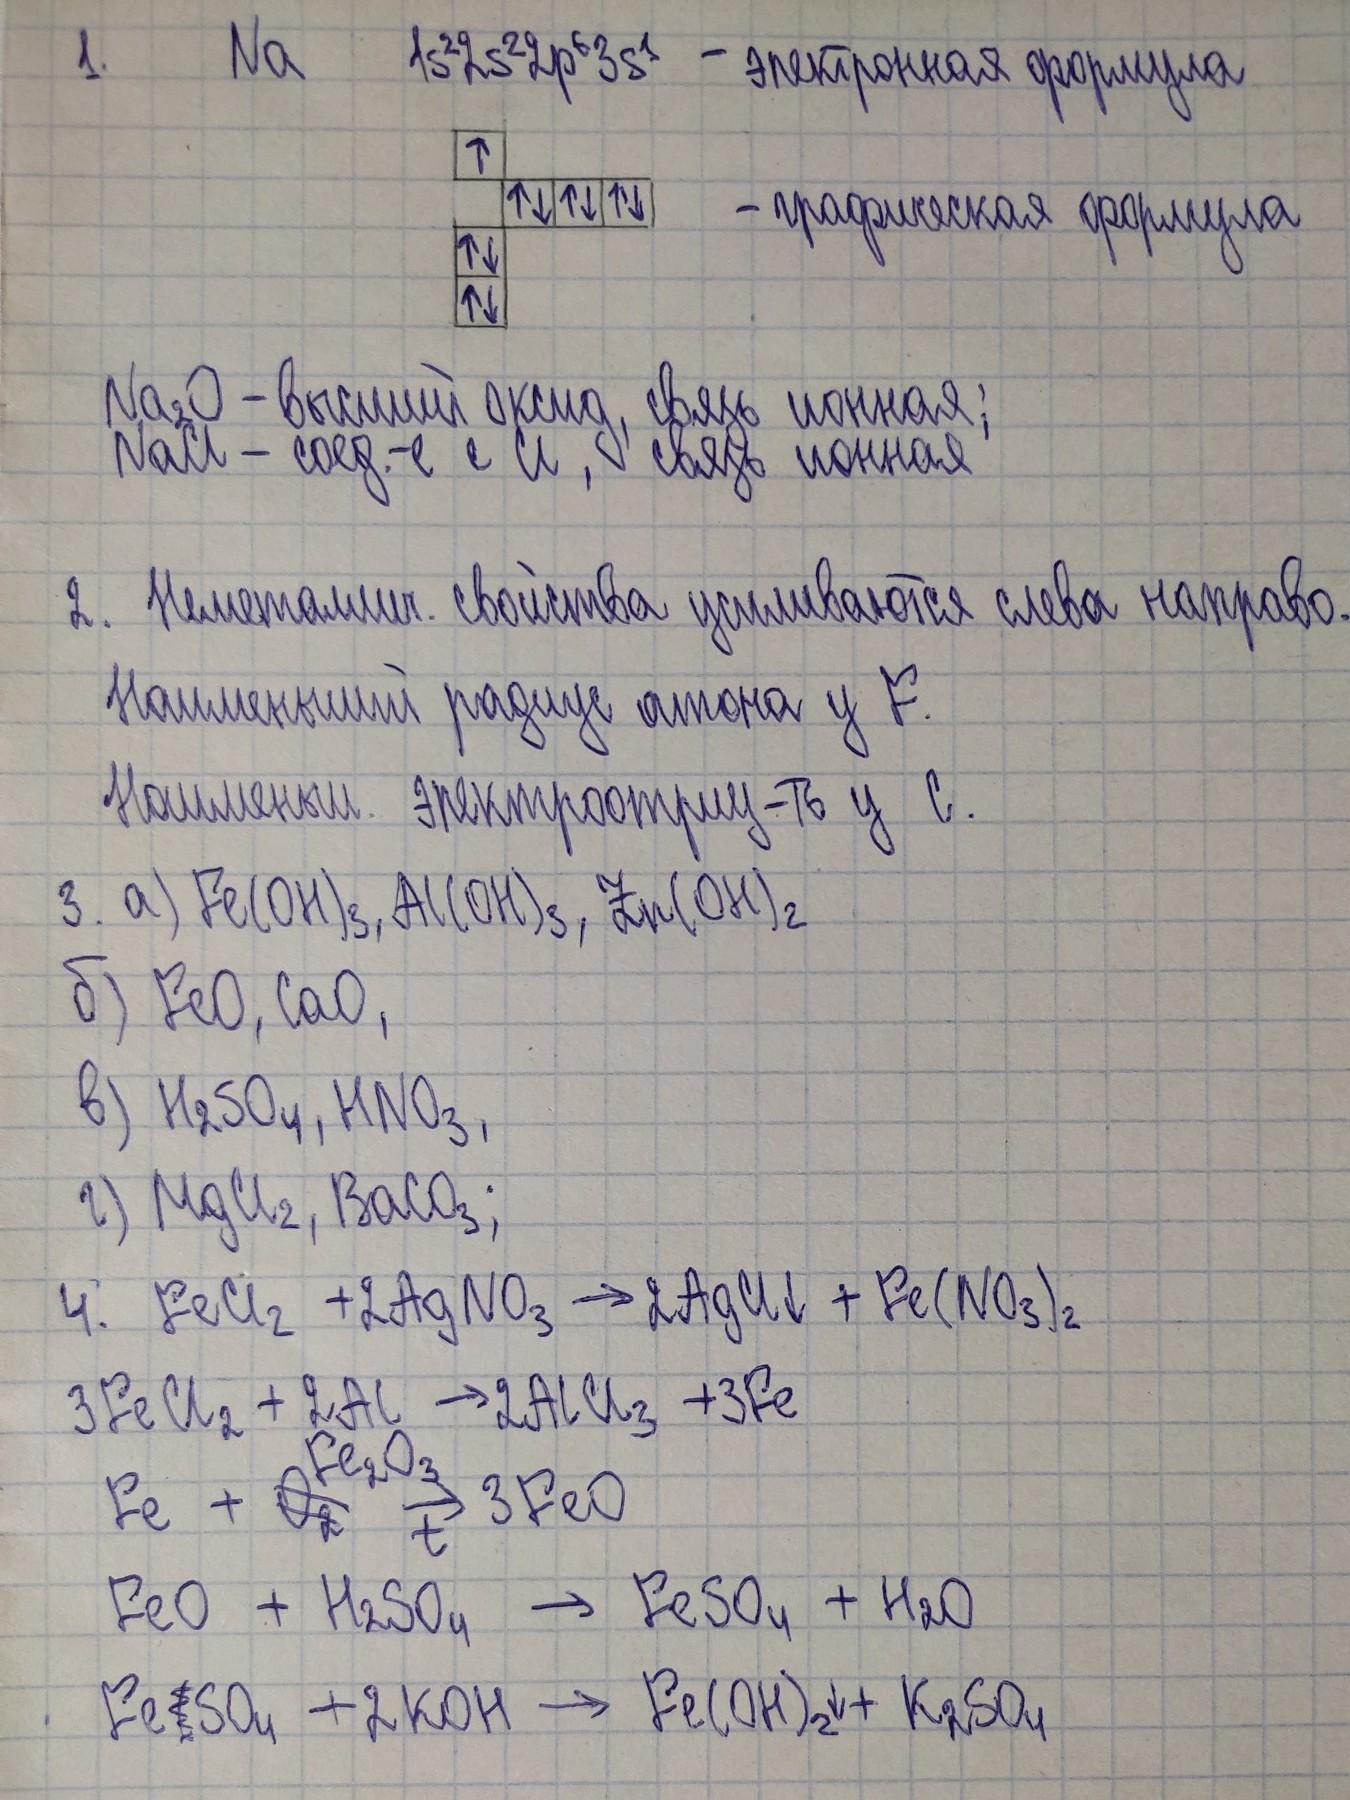 1. Na 1s²2s²2p⁶3s¹ – электронная формула
↑
↑↓ ↑↓ ↑↓ – графическая формула
↑↓
↑↓
Na₂O – высший оксид, связь ионная;
NaCl – соед.-е с Cl, связь ионная
2. Неметаллич. свойства усиливаются слева направо.
Наименьший радиус атома у F.
Наименьш. электроотриц-ть у C.
3. а) Fe(OH)₃, Al(OH)₃, Zn(OH)₂
б) FeO, CaO,
в) H₂SO₄, HNO₃,
г) MgCl₂, BaCO₃;
4. FeCl₂ + 2AgNO₃ → 2AgCl↓ + Fe(NO₃)₂
3FeCl₂ + 2Al → 2AlCl₃ + 3Fe
Fe + Fe₂O₃ →t 3FeO
FeO + H₂SO₄ → FeSO₄ + H₂O
FeSO₄ + 2KOH → Fe(OH)₂↓ + K₂SO₄